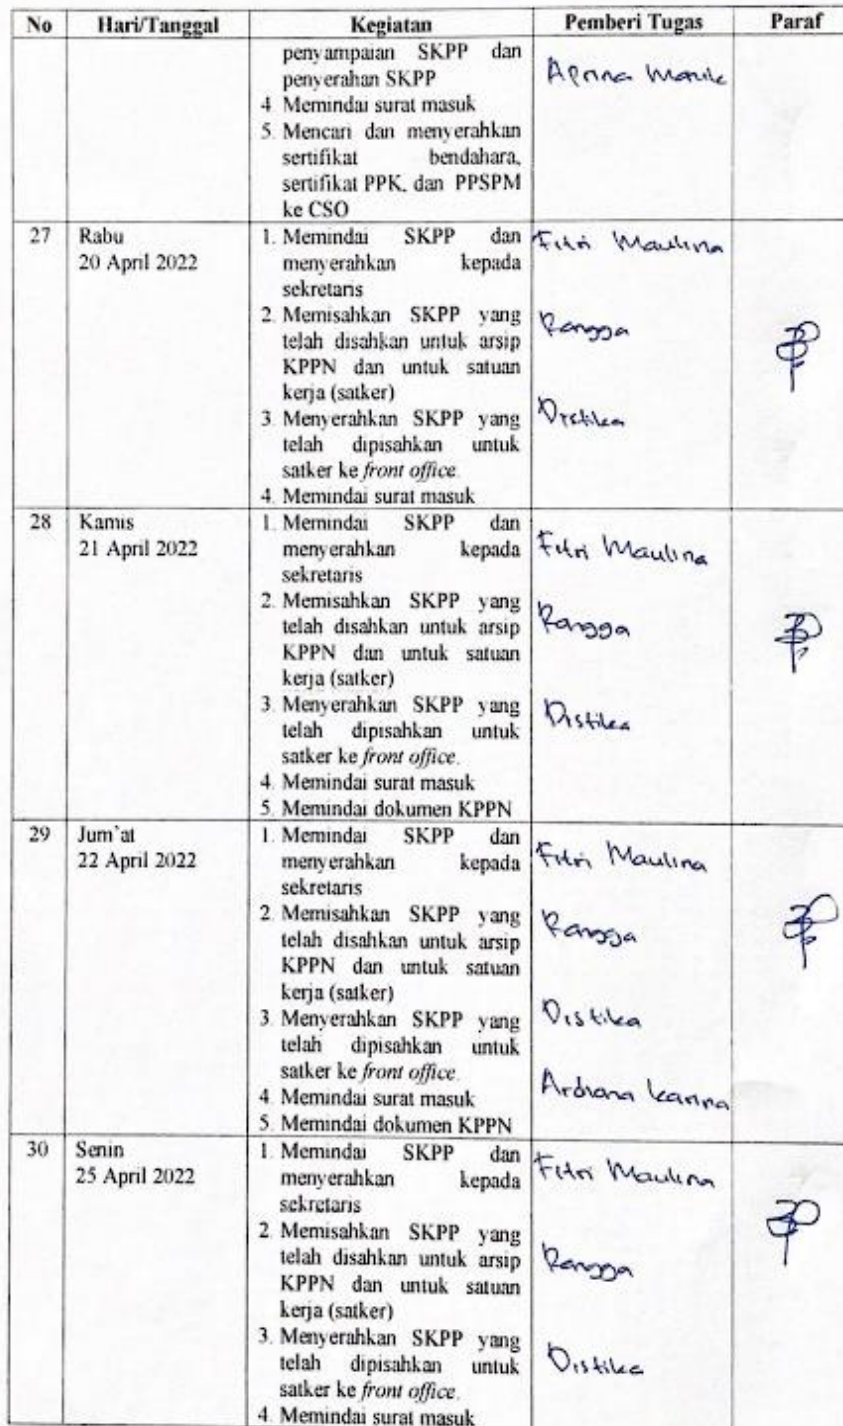 No Hari/Tanggal Kegiatan Pemberi Tugas Paraf
penyampaian SKPP dan
penyerahan SKPP
4. Memindai surat masuk
5. Mencari dan menyerahkan
sertifikat bendahara,
sertifikat PPK, dan PPSPM
ke CSO
Aprina Manik
27 Rabu
20 April 2022
1. Memindai SKPP dan
menyerahkan kepada
sekretaris
2. Memisahkan SKPP yang
telah disahkan untuk arsip
KPPN dan untuk satuan
kerja (satker)
3. Menyerahkan SKPP yang
telah dipisahkan untuk
satker ke front office.
4. Memindai surat masuk
Fitri Maulina
Rangga
Distika
28 Kamis
21 April 2022
1. Memindai SKPP dan
menyerahkan kepada
sekretaris
2. Memisahkan SKPP yang
telah disahkan untuk arsip
KPPN dan untuk satuan
kerja (satker)
3. Menyerahkan SKPP yang
telah dipisahkan untuk
satker ke front office.
4. Memindai surat masuk
5. Memindai dokumen KPPN
Fitri Maulina
Rangga
Distika
29 Jum'at
22 April 2022
1. Memindai SKPP dan
menyerahkan kepada
sekretaris
2. Memisahkan SKPP yang
telah disahkan untuk arsip
KPPN dan untuk satuan
kerja (satker)
3. Menyerahkan SKPP yang
telah dipisahkan untuk
satker ke front office.
4. Memindai surat masuk
5. Memindai dokumen KPPN
Fitri Maulina
Rangga
Distika
Ardiana Karina
30 Senin
25 April 2022
1. Memindai SKPP dan
menyerahkan kepada
sekretaris
2. Memisahkan SKPP yang
telah disahkan untuk arsip
KPPN dan untuk satuan
kerja (satker)
3. Menyerahkan SKPP yang
telah dipisahkan untuk
satker ke front office.
4. Memindai surat masuk
Fitri Maulina
Rangga
Distika